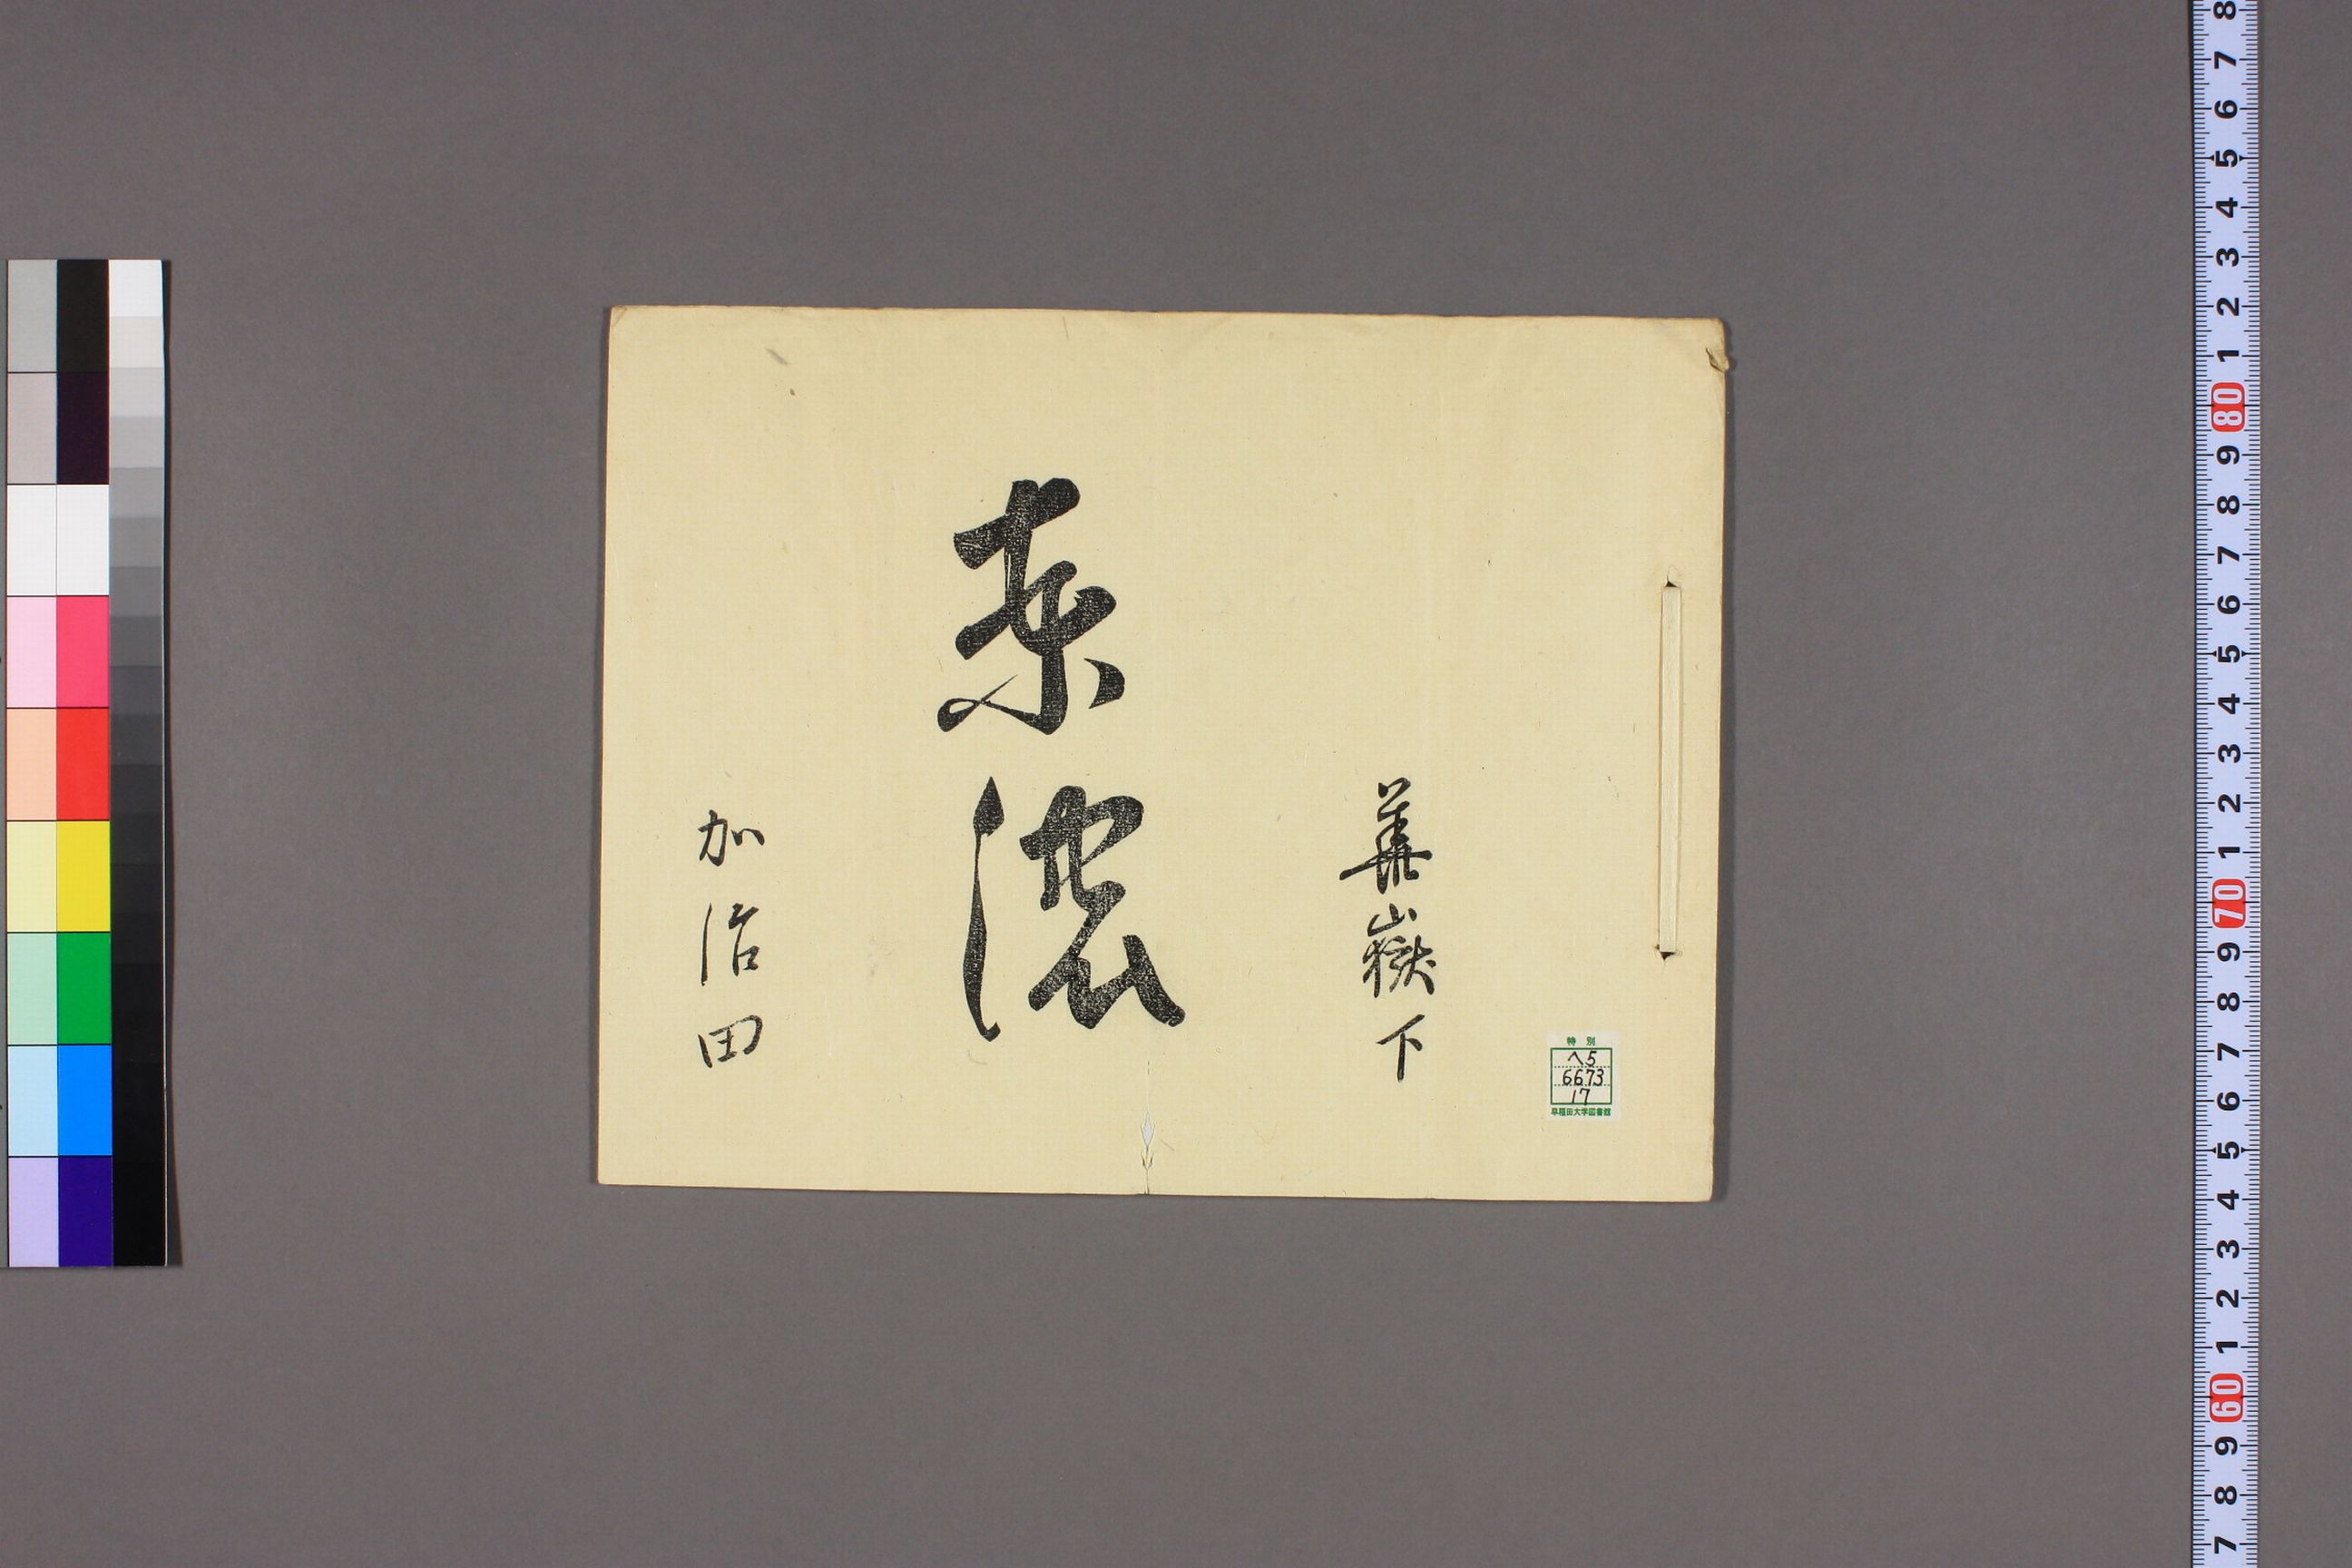 華嶽下
東濃
加治田
特別
ヘ5
6673
17
早稲田大学図書館
8
7
6
5
4
3
2
1
80
9
8
7
6
5
4
3
2
1
70
9
8
7
6
5
4
3
2
1
60
9
8
7